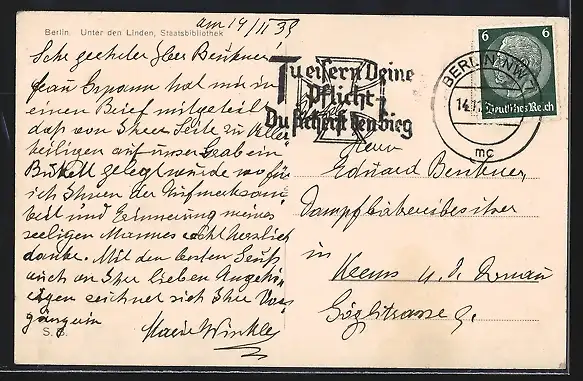 am 14/II 39
Berlin. Unter den Linden, Staatsbibliothek
Sehr geehrter Herr Benkner!
Frau Erpann hat mir in
einen Brief mitgeteilt
daß von Ihrer Seite zu Aller
heiligen auf unser Grab ein
Bukett gelegt wurde wo für
ich Ihnen der Aufmerksam
keit und Erinnerung meines
seeligen Mannes recht herzlich
danke. Mit den besten Gruß
auch an Ihre lieben Angehö-
rigen zeichnet sich Ihre Vor-
gängerin
Marie Winkler
S. 6.
Tu eisern Deine
Pflicht
Du sicherst den Sieg
BERLIN NW 7
14.11.
mc
6 6
Deutsches Reich
Herrn
Eduard Benkner,
Dampfbäkereibesitzer
in
Krems a. d. Donau
Göglstrasse 9.